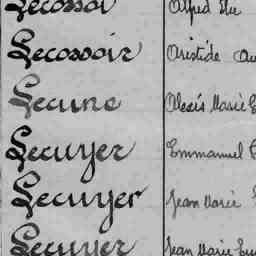 Lecossoi Alfred Elie
Lecossoir Aristide
Lecune Alexis Marie
Lecuyer Emmanuel
Lecuyer Jean Marie
Lecuyer Jean Marie